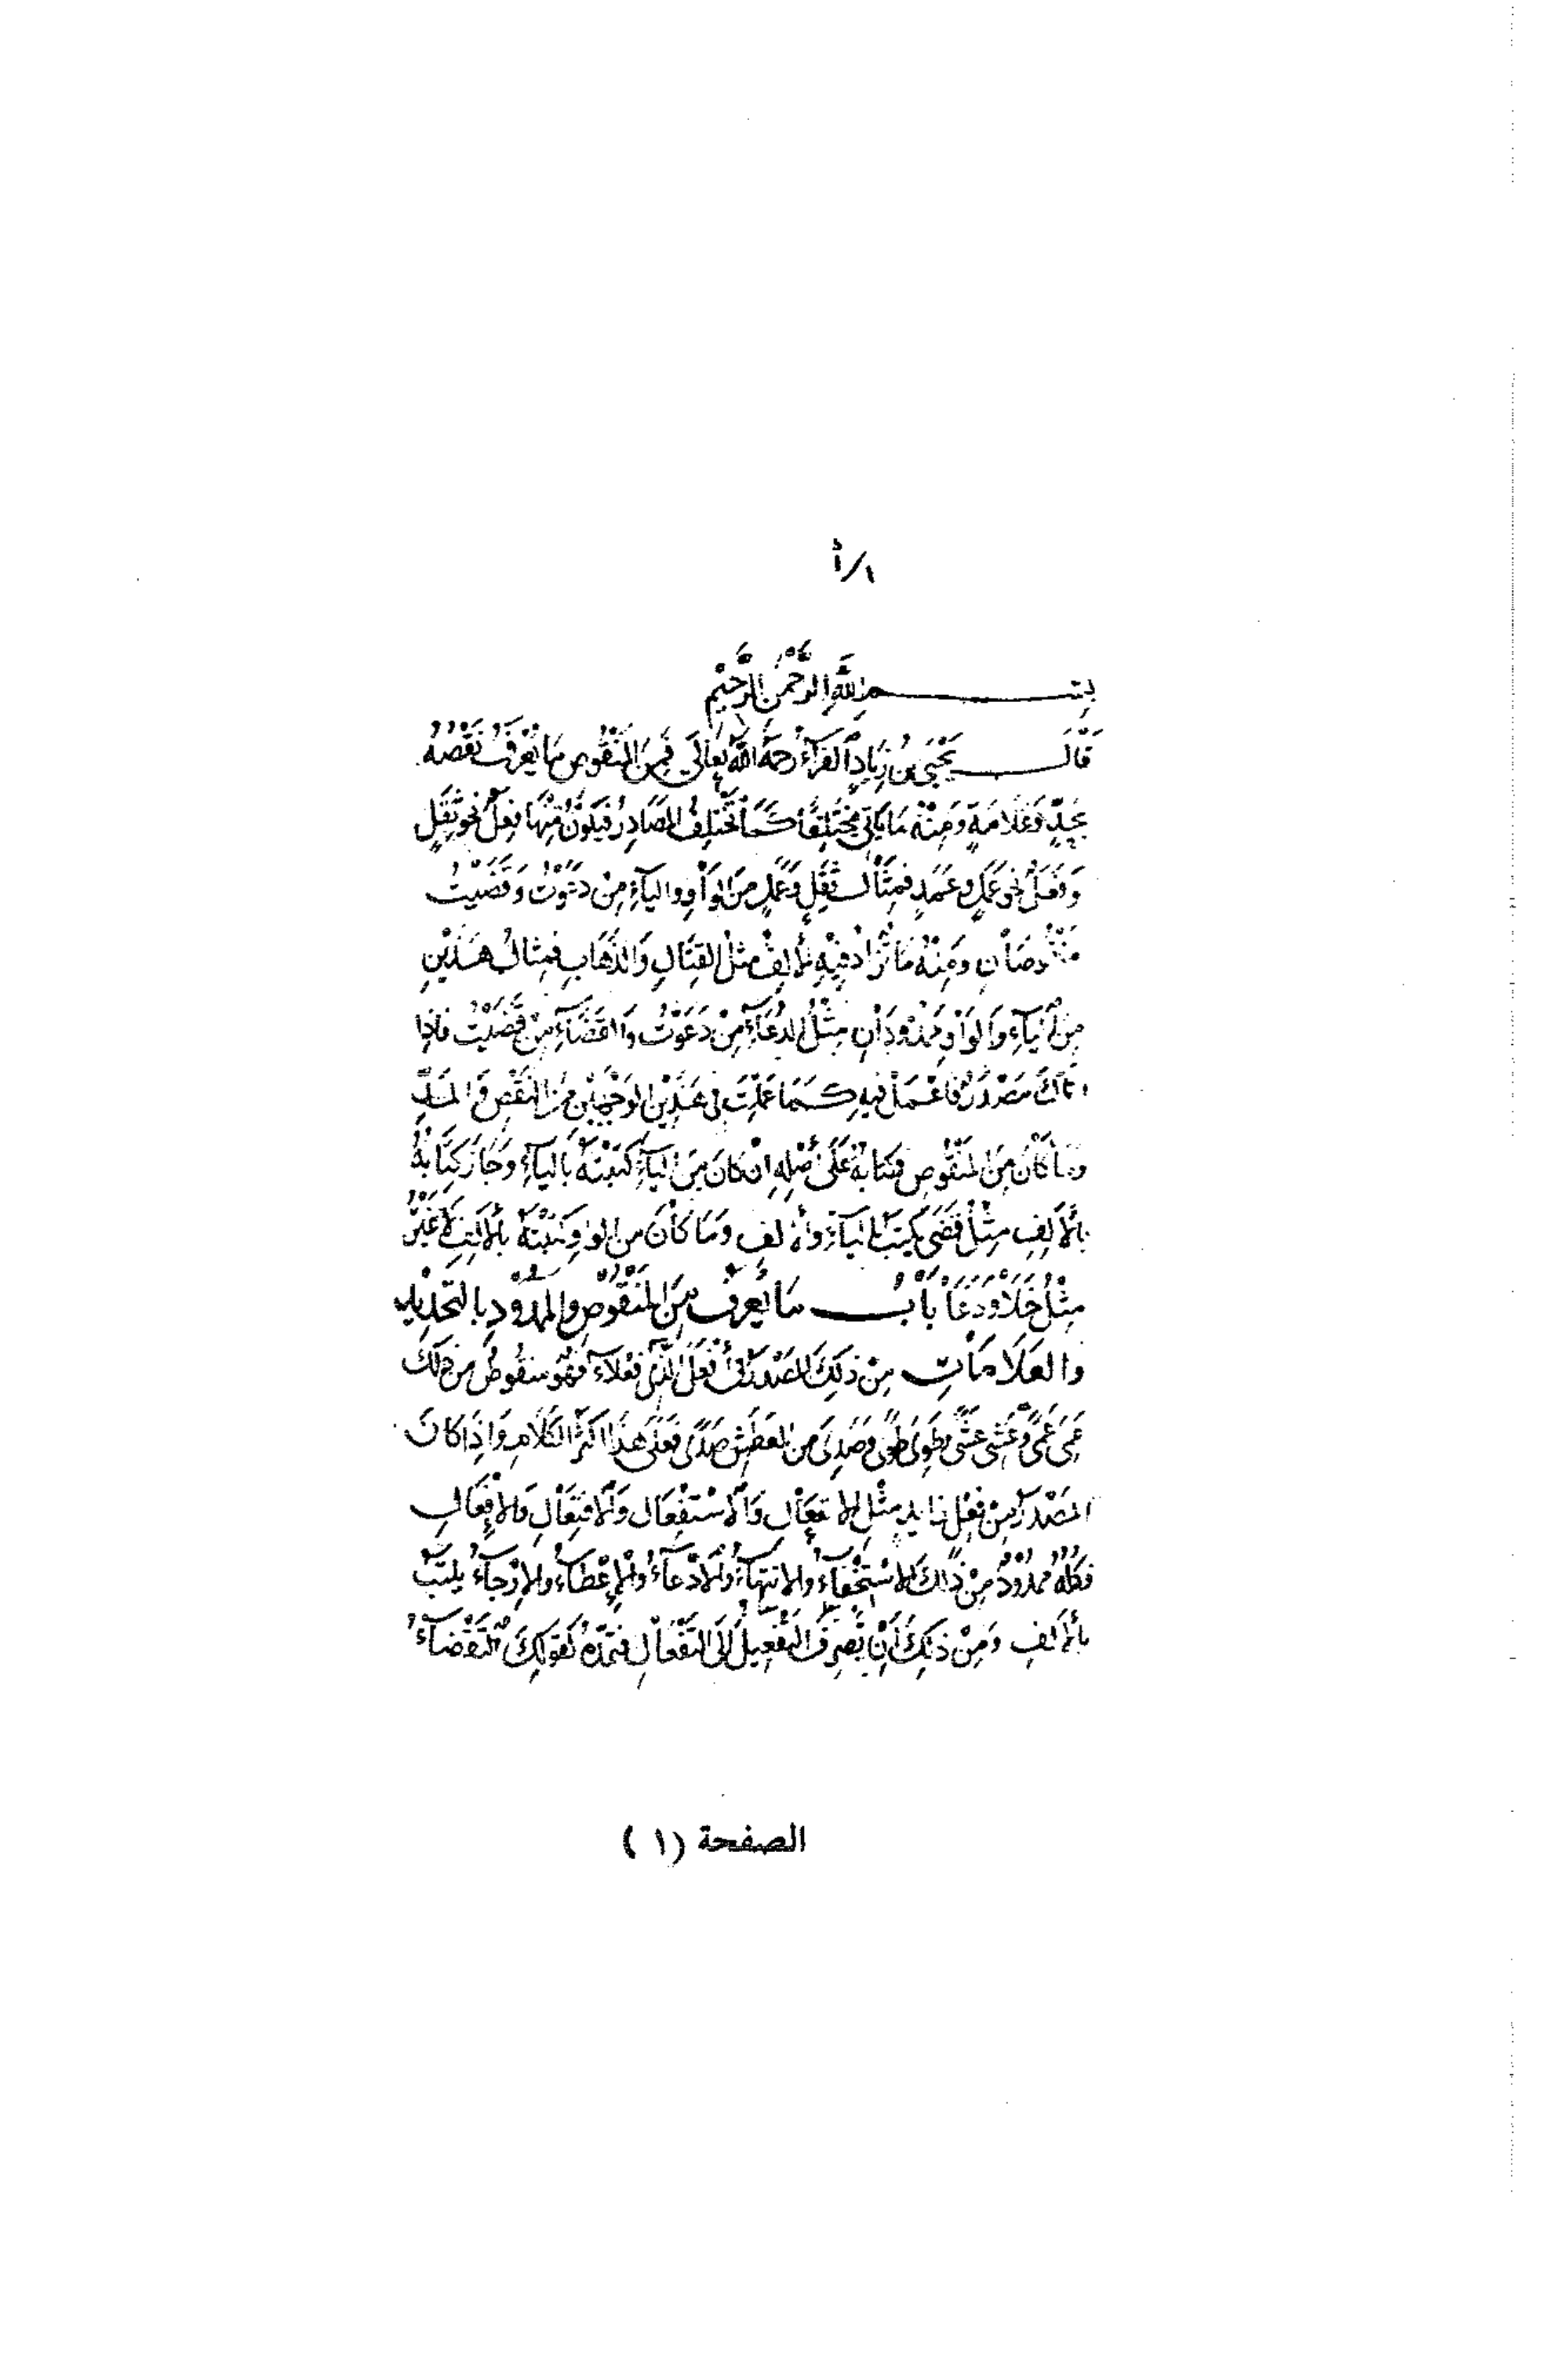 ١/أ
بسم الله الرحمن الرحيم
قَالَ يَحْيَى بنُ زِيَادٍ الفَرَّاءُ رَحِمَهُ اللهُ تعَالَى فَمِنَ المَنْقُوصِ مَا يُعْرَفُ نَقْصُهُ
بِحَدٍّ وَعَلَامَةٍ وَمِنْهُ مَا يَأتي مُخْتَلِفًا كَمَا تَخْتَلِفُ المَصَادِرُ فَيَكُونُ مِنْهَا فِعَلٌ نحو ثِقَلٍ
وَفَعَلٌ نحو عَمَلٍ وعَمَدٍ فمِثَالُ ثِقَلٍ وَعَمَلٍ مِنَ الوَاوِ والياءِ مِنْ دَعَوْتُ وَقَضَيْتُ
مَنْقُوصَانِ وَمِنْهُ مَا تُزَادُ فِيْهِ الألِفُ مثلُ القِتَالِ وَالذَّهَابِ فمِثالُ هَذَيْنِ
مِنَ اليَآءِ وَالوَاوِ مَمْدُودَانِ مِثْلُ الدُعَآءِ مِنْ دَعَوْتُ وَالقَضَآءِ مِنْ قَضَيْتُ فَإِذَا
أتَاكَ مَصْدَرٌ فَاعْمَلْ فيهِ كَمَا عَمِلْتَ في هَذَيْنِ الوَجْهَيْنِ مِنَ النَقْصِ وَالمَدِّ
وَمَا كَانَ مِنَ المَنْقُوصِ فكِتَابُهُ عَلَى أصْلِهِ إنْ كَانَ مِنَ اليَآءِ كَتَبْتَهُ بَاليَآءِ وَجَازَ كِتَابُهُ
بِالأَلِفِ مِثْلُ قَضَى يُكتبُ باليَآءِ والألفِ وَمَا كَانَ من الواوِ كَتَبْتَهُ بالأَلِفِ لَا غَيْرُ
مِثْلُ خَلَا وَدَعَا بَابُ مَا يُعرفُ مِنَ المَنْقُوصِ والممدُودِ بالتَحْدِيْدِ
والعَلَامَاتِ مِنْ ذَلِكَ المَصْدَرُ في أَفْعَلَ الَّذِي فَعْلَاءُ فَهُوَ منقُوصٌ مِن ذلكَ
عَمِيَ عَمًى وَعَشِيَ عَشًى وطَوِيَ طَوًى وَصَدِيَ مِنَ العَطَشِ صَدًى فَعَلَى هَذَا أكثَرُ الكَلَامِ وَإِذَا كَانَ
المَصْدَرُ مِنْ فِعْلٍ زَايدٍ مِثْلِ الانفعَالِ وَالاسْتِفْعَالِ وَالافتِعَالِ وَالإِفْعَالِ
فكُلُّهُ مَمْدُوْدٌ مِنْ ذَلكَ الاسْتِخْفَآءُ والانتِهَآءُ وَالادِّعَآءُ والإِعْطَآءُ والإِرْجَآءُ يُكتَبُ
بالأَلِفِ وَمِنْ ذَلِكَ أنْ تَصْرِفَ التَفْعِيلَ إلَى التَفْعَالِ فتمُدَّهُ كَقَوْلِكَ التَقْضَآءُ
الصفحة (١)